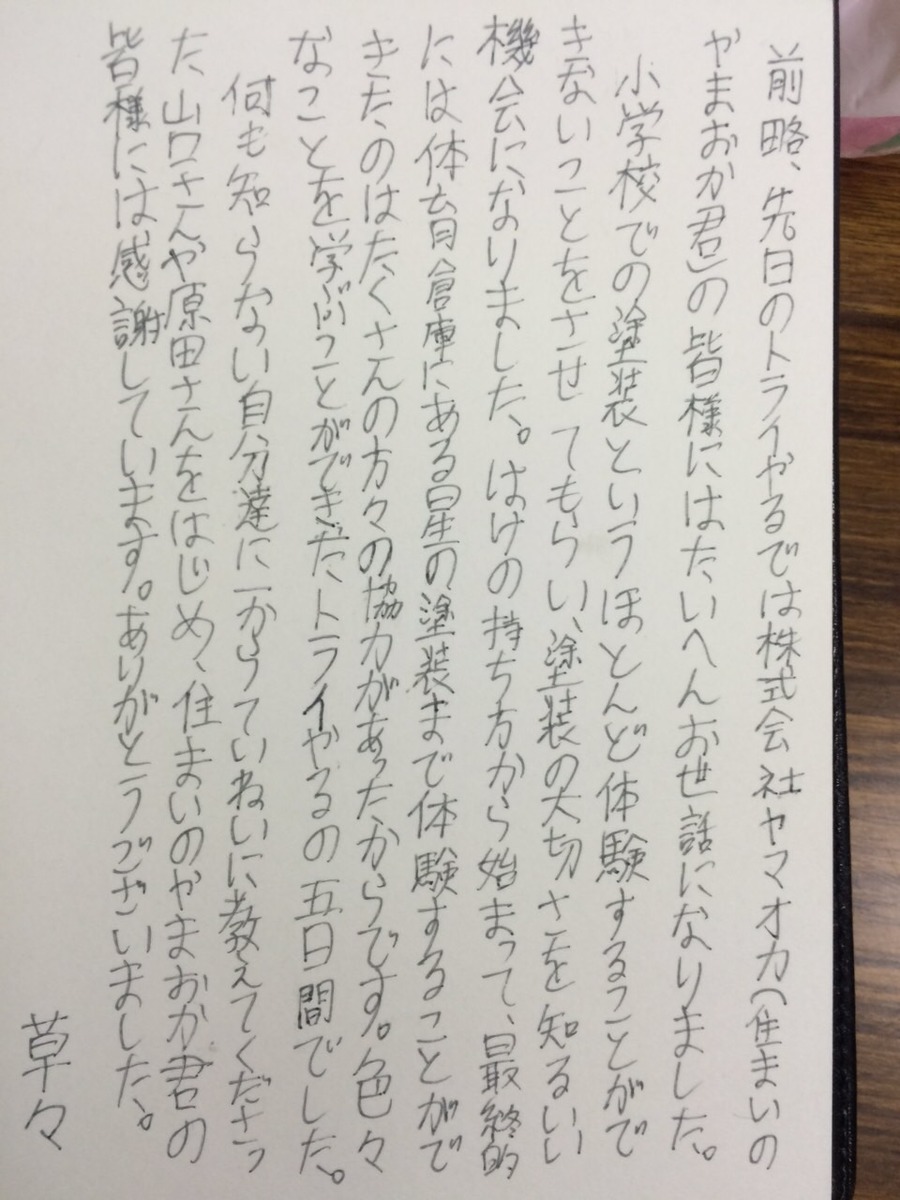 前略、先日のトライやるでは株式会社ヤマオカ(住まいの
やまおか君)の皆様にはたいへんお世話になりました。
小学校での塗装というほとんど体験することがで
きないことをさせてもらい、塗装の大切さを知るいい
機会になりました。はけの持ち方から始まって、最終的
には体育倉庫にある星の塗装まで体験することがで
きたのはたくさんの方々の協力があったからです。色々
なことを学ぶことができたトライやるの五日間でした。
何も知らない自分達に一からていねいに教えてくださっ
た、山口さんや原田さんをはじめ、住まいのやまおか君の
皆様には感謝しています。ありがとうございました。
草々